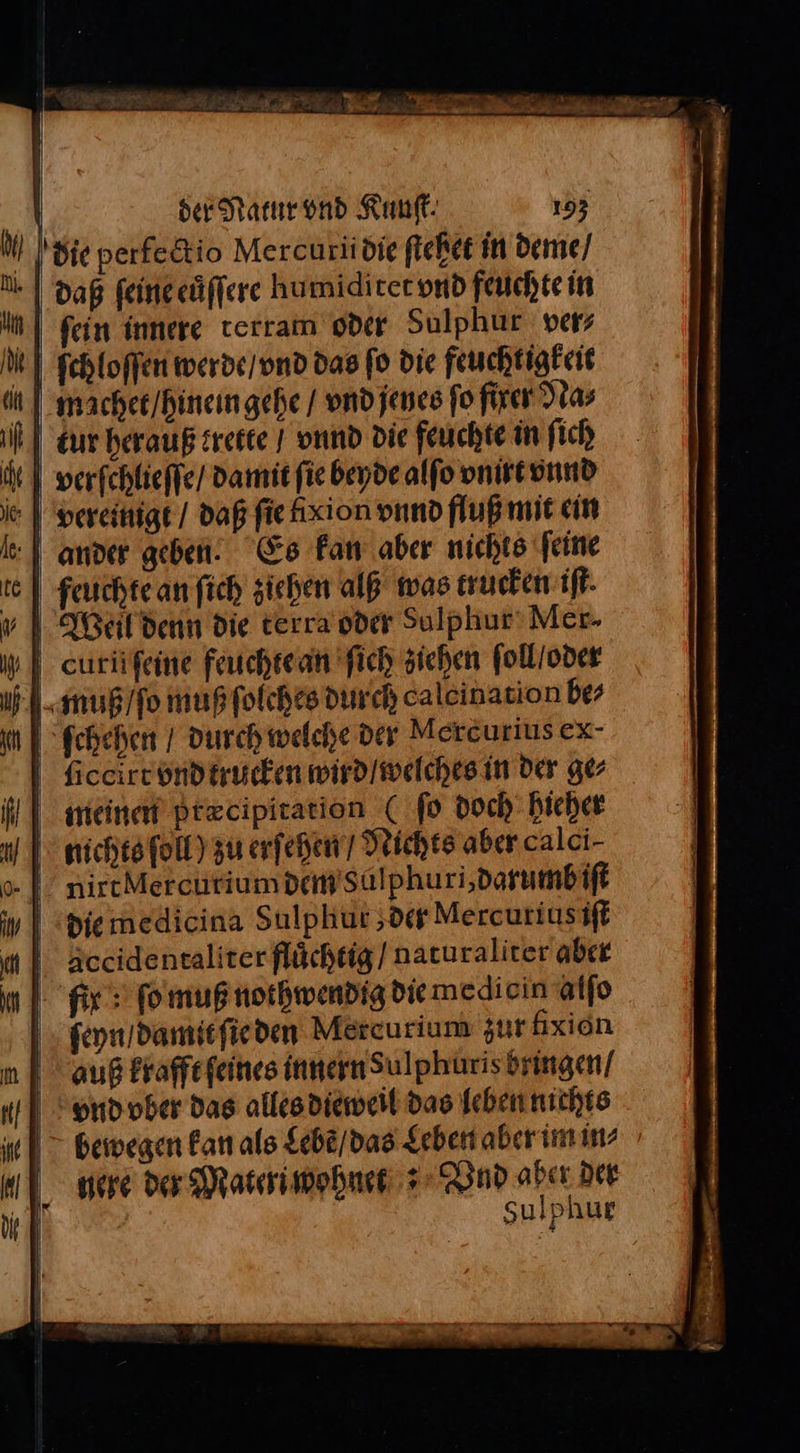 der Natur vnd Kunſt. 193
die perfectio Mercurii die ſtehet in deme/
daß ſeine eüſſere humiditet vnd feuchte in
ſein innere terram oder Sulphur ver⸗
ſchloſſen werde/vnd das ſo die feuchtigkeit
machet/hinein gehe / vnd jenes ſo fixer Na⸗
tur herauß trette / vnnd die feuchte in ſich
verſchlieſſe/ damit ſie beyde alſo vnirt vnnd
vereinigt / daß ſie fixion vnnd fluß mit ein
ander geben. Es kan aber nichts ſeine
feuchte an ſich ziehen alß was trucken iſt.
Weil denn die terra oder Sulphur Mer-
curii ſeine feuchte an ſich ziehen ſoll/oder
muß/ſo muß ſolches durch calcination be⸗
ſchehen / durch welche der Mercurius ex-
ſiccirt vnd trucken wird/welches in der ge⸗
meinen præcipitation ( ſo doch hieher
nichts ſoll) zu erſehen / Nichts aber calci-
nirt Mercurium dem Sulphuri, darumb iſt
die medicina Sulphur ; der Mercurius iſt
accidentaliter flüchtig / naturaliter aber
fix : ſo muß nothwendig die medicin alſo
ſeyn/damit ſie den Mercurium zur fixion
auß krafft ſeines innern Sulphuris bringen/
vnd vber das alles dieweil das leben nichts
bewegen kan als Lebẽ/das Leben aber im in⸗
nere der Materi wohnet : Vnd aber der
Sulphur